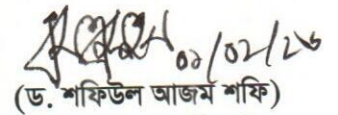 ০১/০২/২৬
(ড. শফিউল আজম শফি)